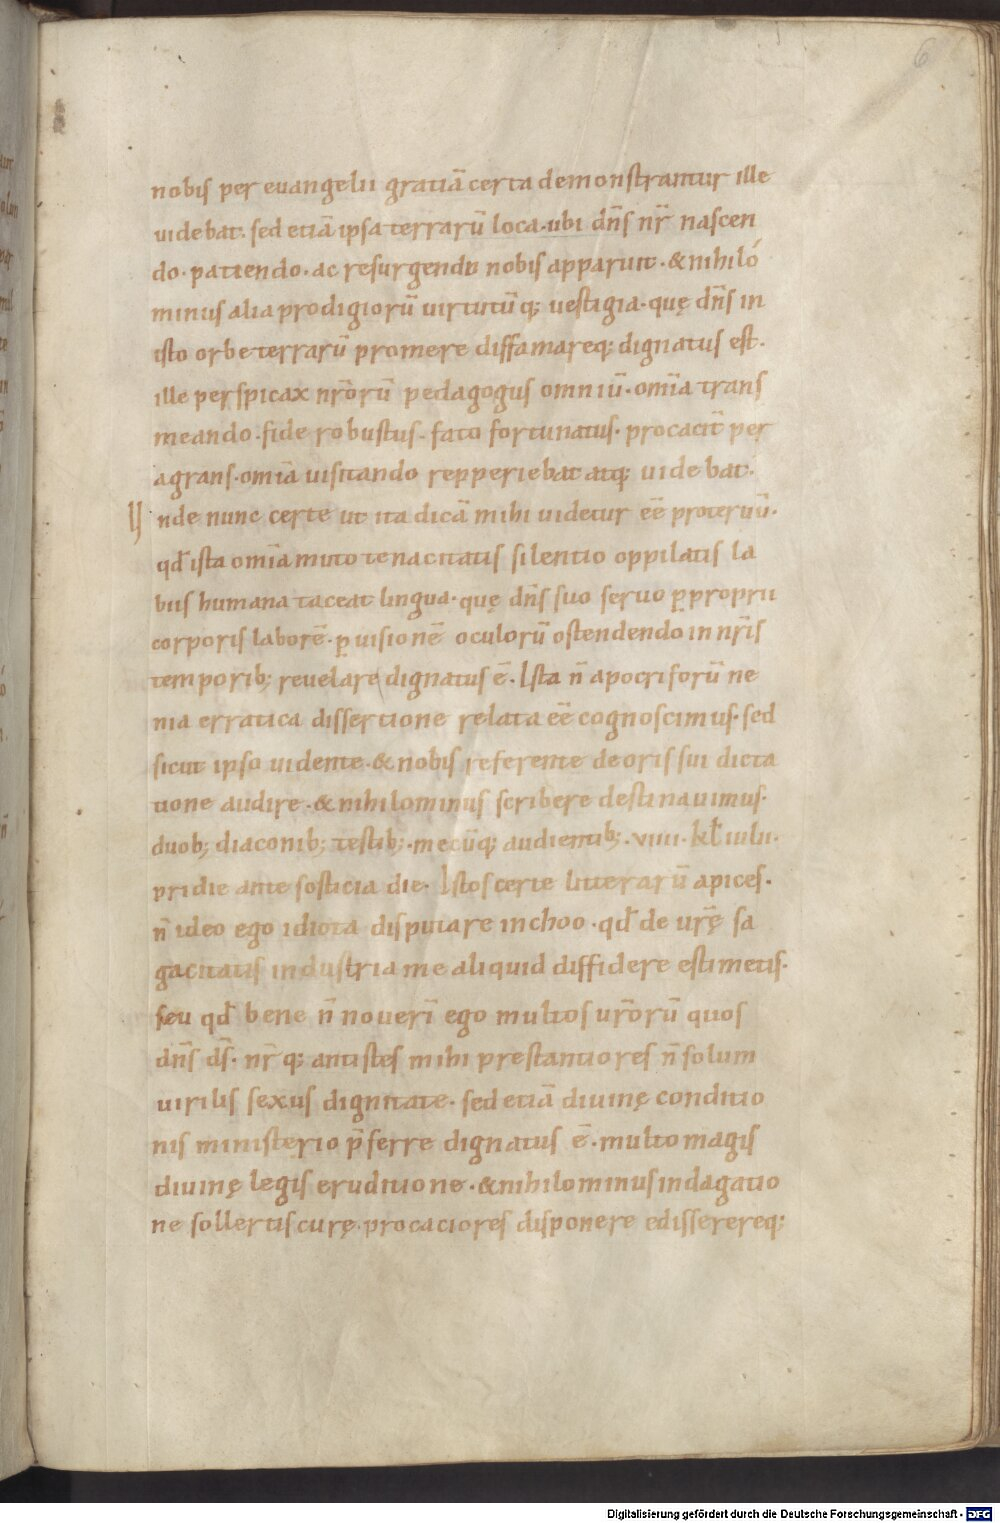 6
nobis per euangelii gratiā certa demonstrantur ille
uidebat. sed etiā ipsa terrarū loca. ubi dn̄s nr̄ nascen
do. patiendo. ac resurgendo nobis apparuit. & nihilo
minus alia prodigiorū uirtutūq; uestigia. quę dn̄s in
isto orbe terrarū promere diffamareq; dignatus est.
ille perspicax nr̄orū pedagogus omniū. om̄ia trans
meando. fide robustus. fato fortunatus. procacit̄ per
agrans. om̄ia uisitando repperiebat atq; uidebat.
Unde nunc certe ut ita dicā mihi uidetur eē proteruū.
qd̄ ista om̄ia muto tenacitatis silentio oppilatis la
biis humana taceat lingua. quę dn̄s suo seruo ꝑ proprii
corporis laborē. ꝑ uisionē oculorū ostendendo in nr̄is
temporib; reuelare dignatus ē. Ista n̄ apocriforū ne
nia erratica dissertione relata eē cognoscimus. sed
sicut ipso uidente. & nobis referente de oris sui dicta
tione audire. & nihilominus scribere destinauimus.
duob; diaconib; testib;. mecūq; audientib;. viiii. kl̄ iulii.
pridie ante solsticia die. Istos certe litterarū apices.
n̄ ideo ego idiota disputare inchoo. qd̄ de ur̄ę sa
gacitatis industria me aliquid diffidere estimetis.
seu qd̄ bene n̄ nouerī ego multos ur̄orū quos
dn̄s ds̄. nr̄q; antistes mihi prestantiores n̄ solum
uirilis sexus dignitate. sed etiā diuinę conditio
nis ministerio p̄ferre dignatus ē. multo magis
diuinę legis eruditione. & nihilominus indagatio
ne sollertis curę. procaciores disponere edisserereq;
Digitalisierung gefördert durch die Deutsche Forschungsgemeinschaft - DFG